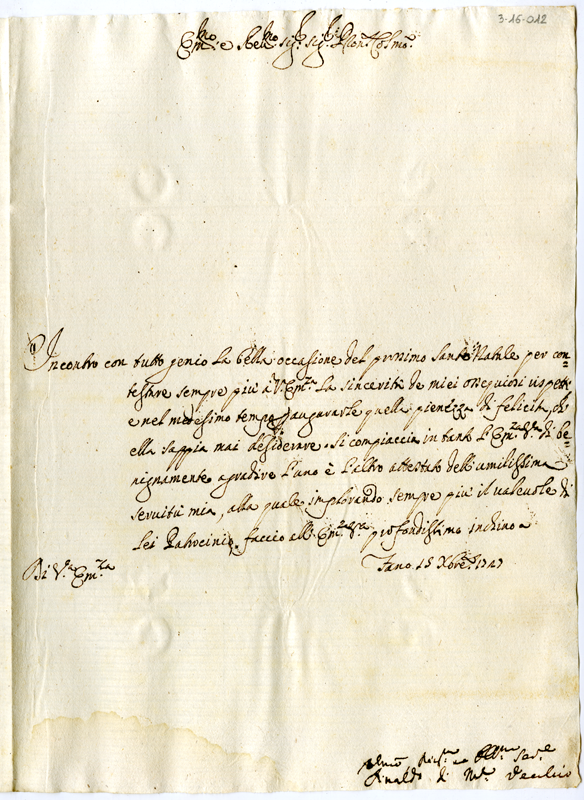 3-16-012
Em.mo e Rev.mo Sig.r Sig.r P.ron Col.mo
Incontro con tutto genio la bella occasione del prossimo Santo Natale per con=
testare sempre più à V.a Em.za la sincerità de miei ossequiosi rispetti
e nel medesimo tempo augurarle quella pienezza di felicità, che
ella sappia mai desiderare. Si compiaccia in tanto l'Em.za V.ra di be=
nignamente agradire l'uno è l'altro attestato dell'umilissima
servitù mia, alla quale implorando sempre più il valevole di
Lei Patrocinio, faccio all'Em.za V.ra profondissimo inchino
Di V.a Em.za
Fano 15 Xbre 1747
Rinaldo di